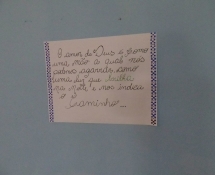 O amor de Deus é como
uma mão a qual nos
podemos agarrar, como
uma luz que brilha
na noite e nos indica
o
caminho...